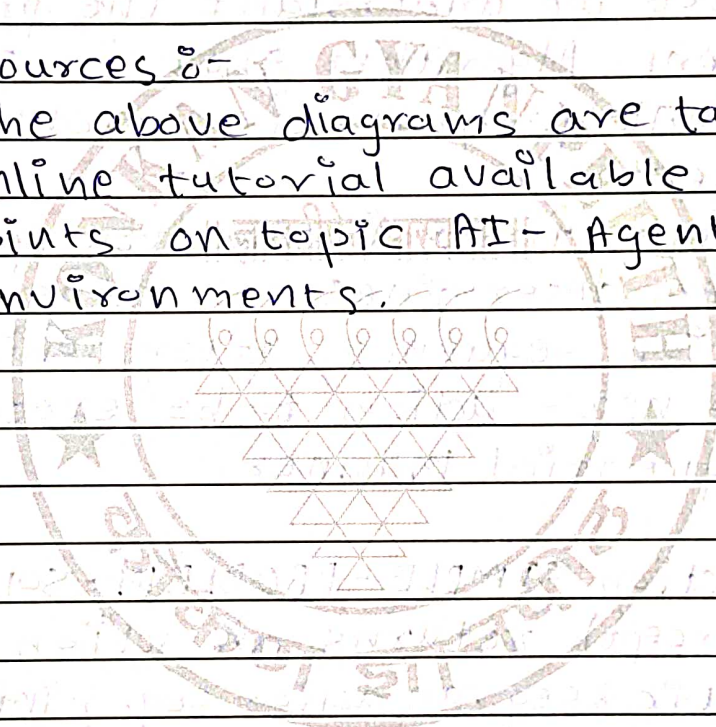 ources :-
he above diagrams are ta
nline tutorial available
ints on topic AI- Agent
nvironments.